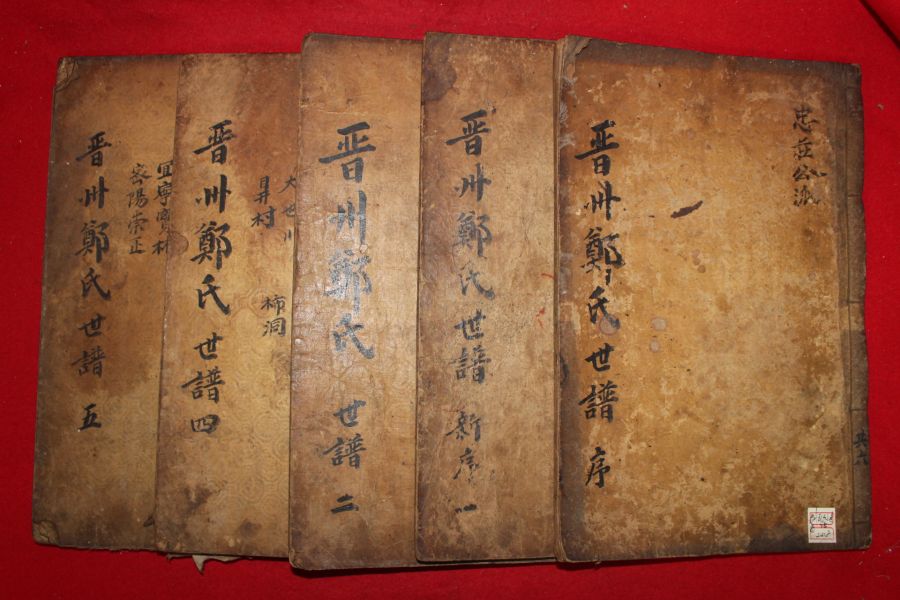 忠莊公派
晋州鄭氏世譜 序
共六
晋州鄭氏世譜 新序 一
晋州鄭氏 世譜 二
柿洞
昌村
晋州鄭氏世譜 四
宜寧
密陽崇正
晋州鄭氏世譜 五